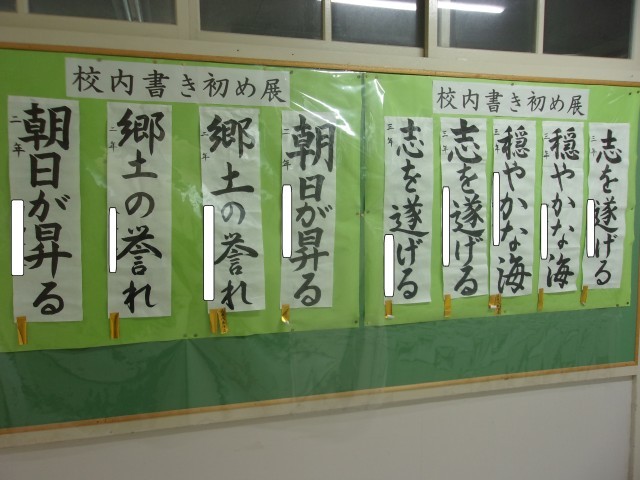 校内書き初め展
朝日が昇る
二年
郷土の誉れ
二年
郷土の誉れ
二年
朝日が昇る
二年
校内書き初め展
志を遂げる
三年
志を遂げる
三年
穏やかな海
三年
穏やかな海
三年
志を遂げる
三年